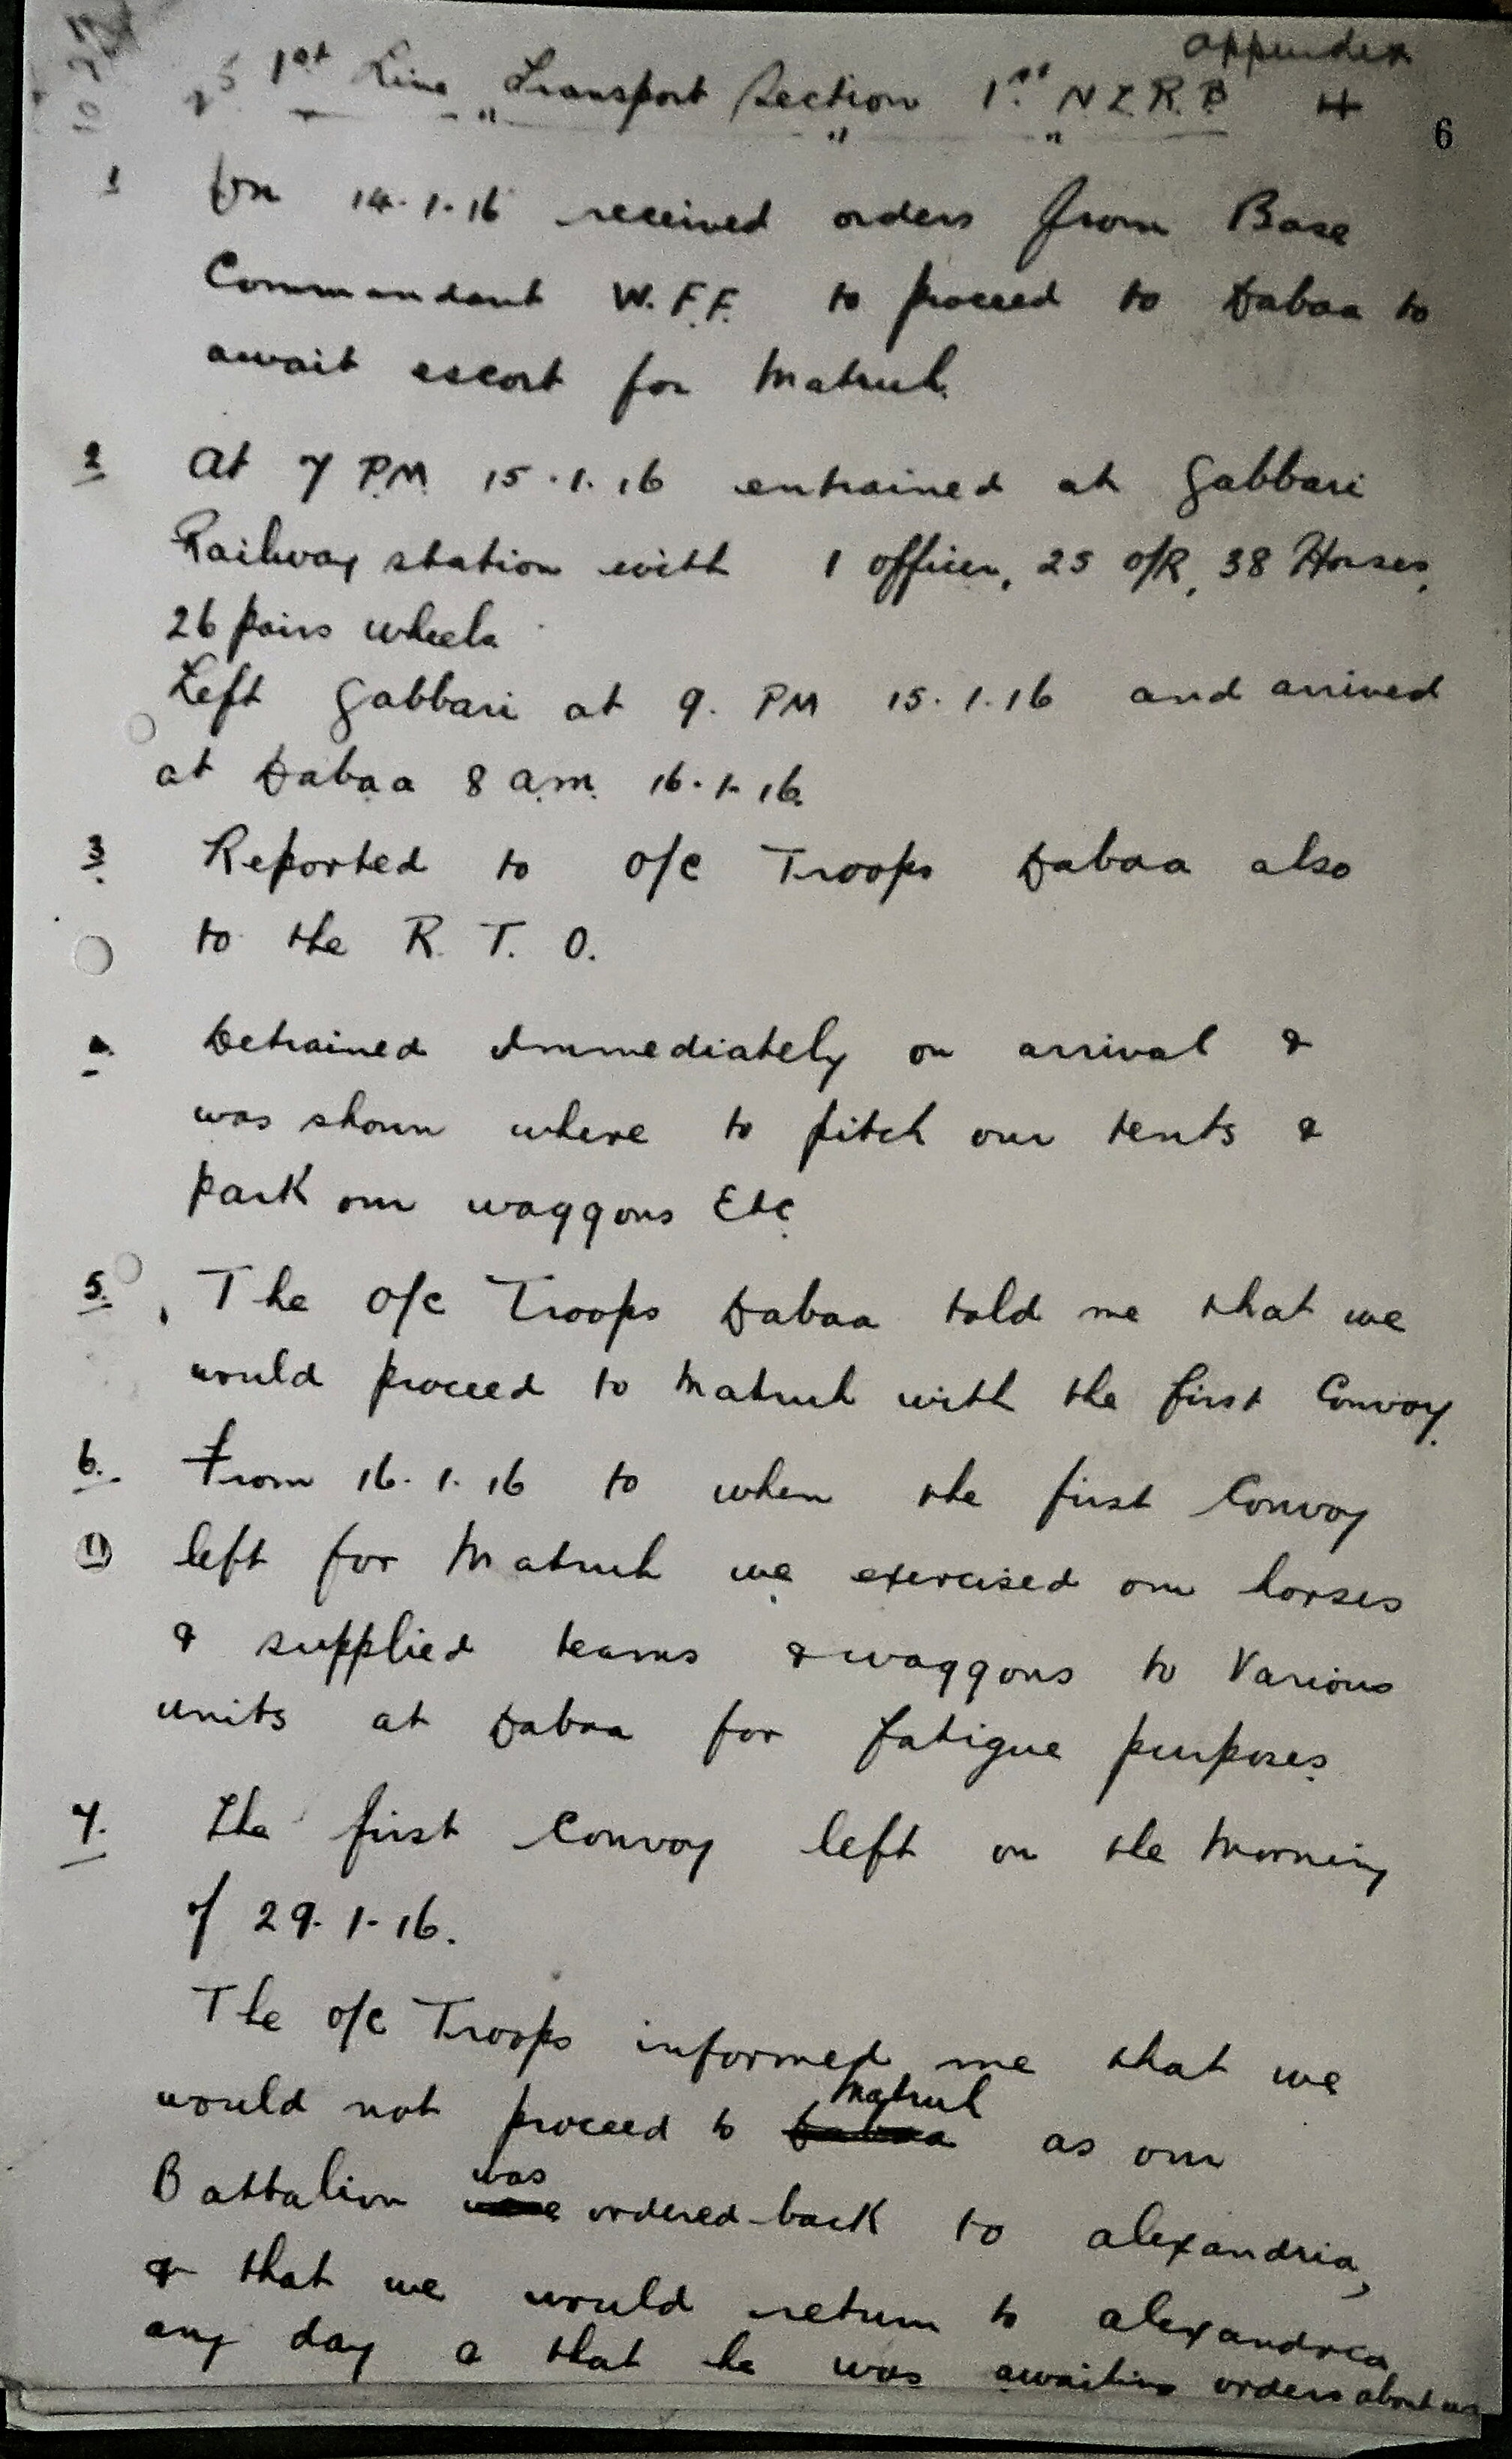 appendix
1st Line Transport Section 1st N Z R. B H
6
1 On 14.1.16 received orders from Base
Commandant W.F.F. to proceed to Dabaa to
await escort for Matruh.
2 at 7 P.M. 15.1.16 entrained at Gabbari
Railway station with 1 officer, 25 O/R, 38 Horses,
26 pairs wheels
Left Gabbari at 9. PM 15.1.16 and arrived
at Dabaa 8 a.m. 16.1.16.
3 Reported to O/C Troops Dabaa also
to the R. T. O.
4. Detrained immediately on arrival &
was shown where to pitch our tents &
park our waggons Etc.
5. The O/C Troops Dabaa told me that we
would proceed to Matruh with the first Convoy.
6. From 16.1.16 to when the first Convoy
left for Matruh we exercised our horses
& supplied teams & waggons to Various
units at Dabaa for fatigue purposes.
7. The first Convoy left on the Morning
of 29.1.16.
The O/C Troops informed me that we
would not proceed to Dabaa Matruh as our
Battalion were was ordered back to alexandria,
& that we would return to alexandria
any day & that he was awaiting orders about us